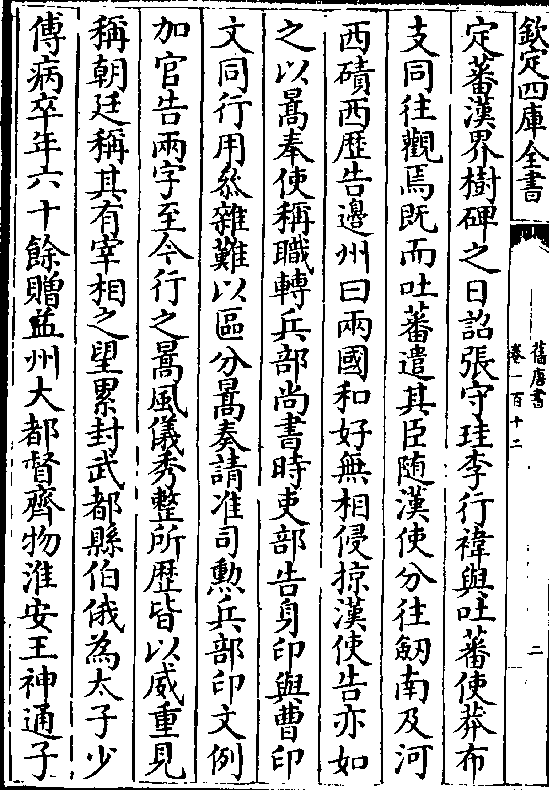 欽定四庫全書
舊唐書
卷一百十二
二
定蕃漢界樹碑之日詔張守珪李行禕與吐蕃使莽布
支同往觀焉既而吐蕃遣其臣随漢使分往劒南及河
西磧西歴告邊州曰兩國和好無相侵掠漢使告亦如
之以暠奉使稱職轉兵部尚書時吏部告身印與曹印
文同行用叅雜難以區分暠奏請准司勲兵部印文例
加官告兩字至今行之暠風儀秀整所歴皆以威重見
稱朝廷稱其有宰相之望累封武都縣伯俄為太子少
傅病卒年六十餘贈益州大都督齊物淮安王神通子